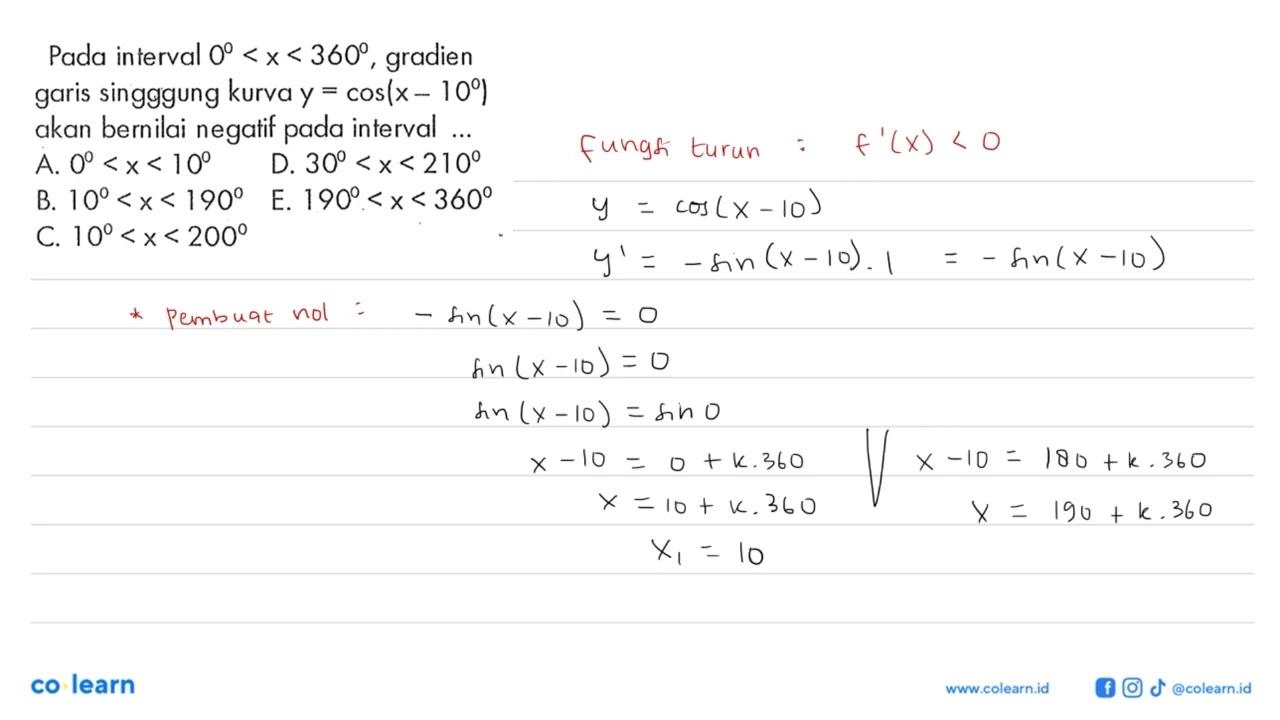 Pada interval 0⁰ < x < 360⁰, gradien
garis singggung kurva y = cos(x – 10⁰)
akan bernilai negatif pada interval ...
A. 0⁰ < x < 10⁰ D. 30⁰ < x < 210⁰
B. 10⁰ < x < 190⁰ E. 190⁰ < x < 360⁰
C. 10⁰ < x < 200⁰
Fungsi turun : f'(x) < 0
y = cos(x – 10)
y' = – sin(x – 10) . 1 = – sin(x – 10)
* Pembuat nol : – sin(x – 10) = 0
sin(x – 10) = 0
sin(x – 10) = sin 0
x – 10 = 0 + k.360 V x – 10 = 180 + k.360
x = 10 + k.360 x = 190 + k.360
x₁ = 10
co learn
www.colearn.id @colearn.id